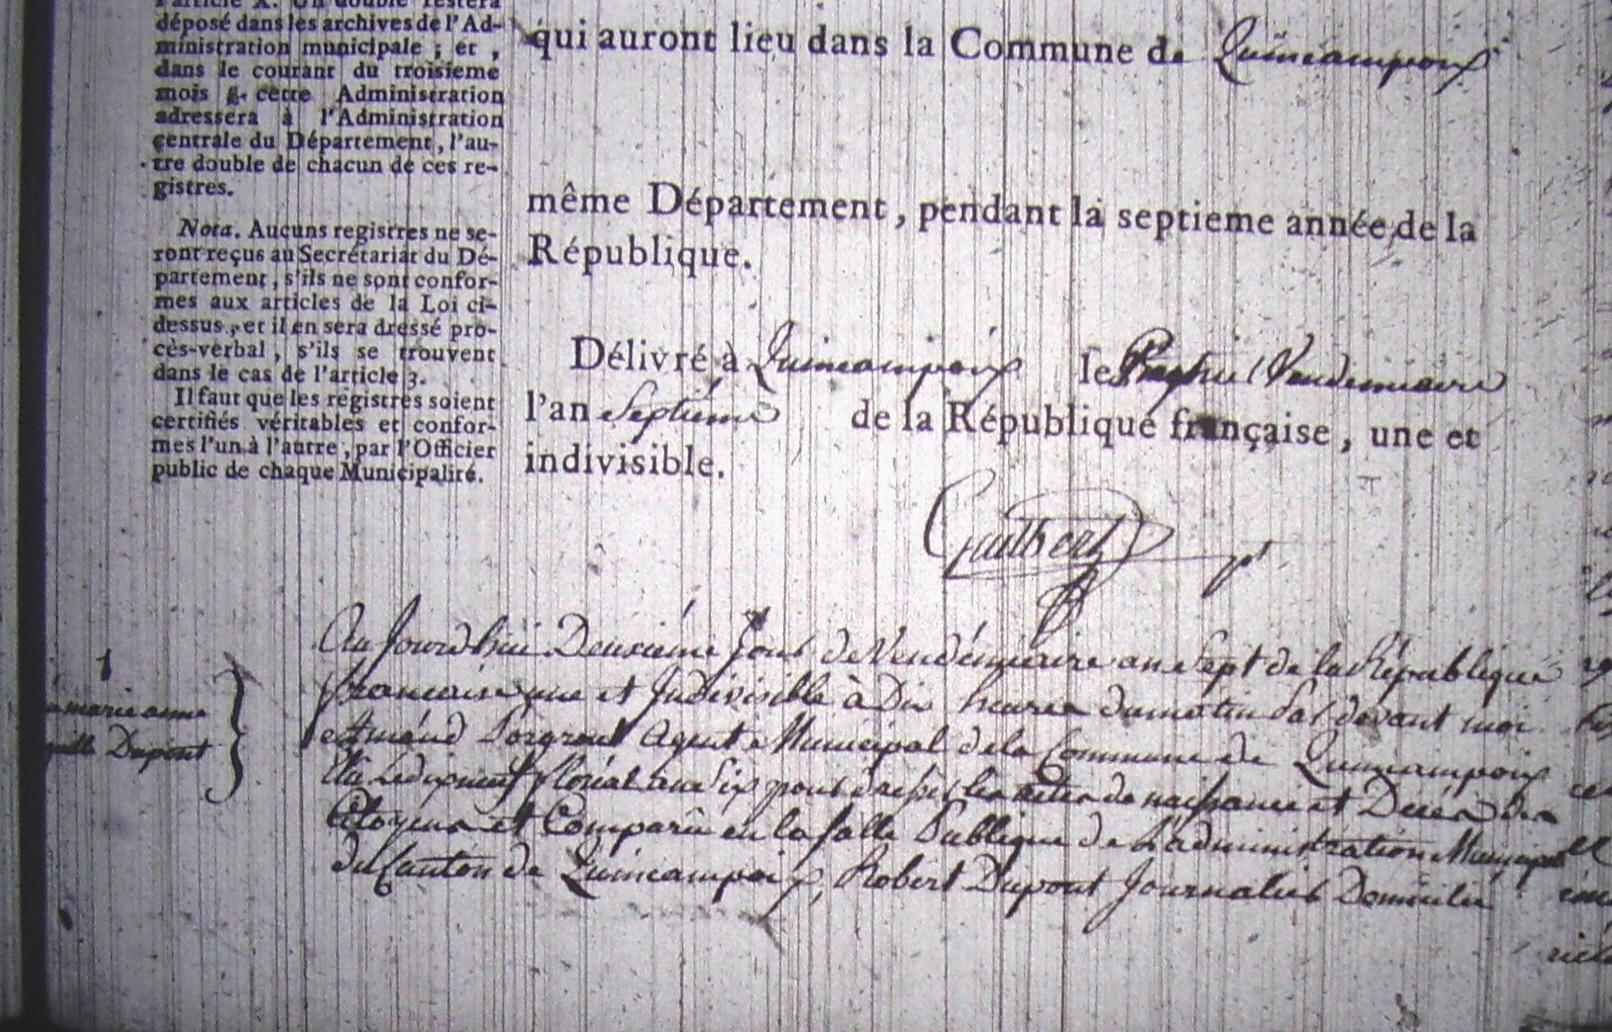 l'article X. Un double restera
déposé dans les archives de l'Ad-
ministration municipale ; et ,
dans le courant du troisieme
mois cette Administration
adressera à l'Administration
centrale du Département, l'au-
tre double de chacun de ces re-
gistres.
Nota. Aucuns registres ne se-
ront reçus au Secrétariat du Dé-
partement, s'ils ne sont confor-
mes aux articles de la Loi ci-
dessus, et il en sera dressé pro-
cès-verbal, s'ils se trouvent
dans le cas de l'article 3.
Il faut que les registres soient
certifiés véritables et confor-
mes l'un à l'autre, par l'Officier
public de chaque Municipalité.
qui auront lieu dans la Commune de Quincampoix
même Département, pendant la septieme année de la
République.
Délivré à Quincampoix le Vendemiaire
l'an Septiéme de la République française, une et
indivisible.
1
marie anne
Dupont
Au Jourdhui Deuxiéme Jour de Vendémiaire an Sept de la République
francaise une et Indivisible à Dix heures du matin Par devant moi
Agent Municipal de la Commune de Quincampoix
floréal an Six pour les actes de naissance et Decés des
Citoyens et Comparû en la salle Publique de L'administration Municipal
du Canton de Quincampoix, Robert Dupont Journalier Domicilié